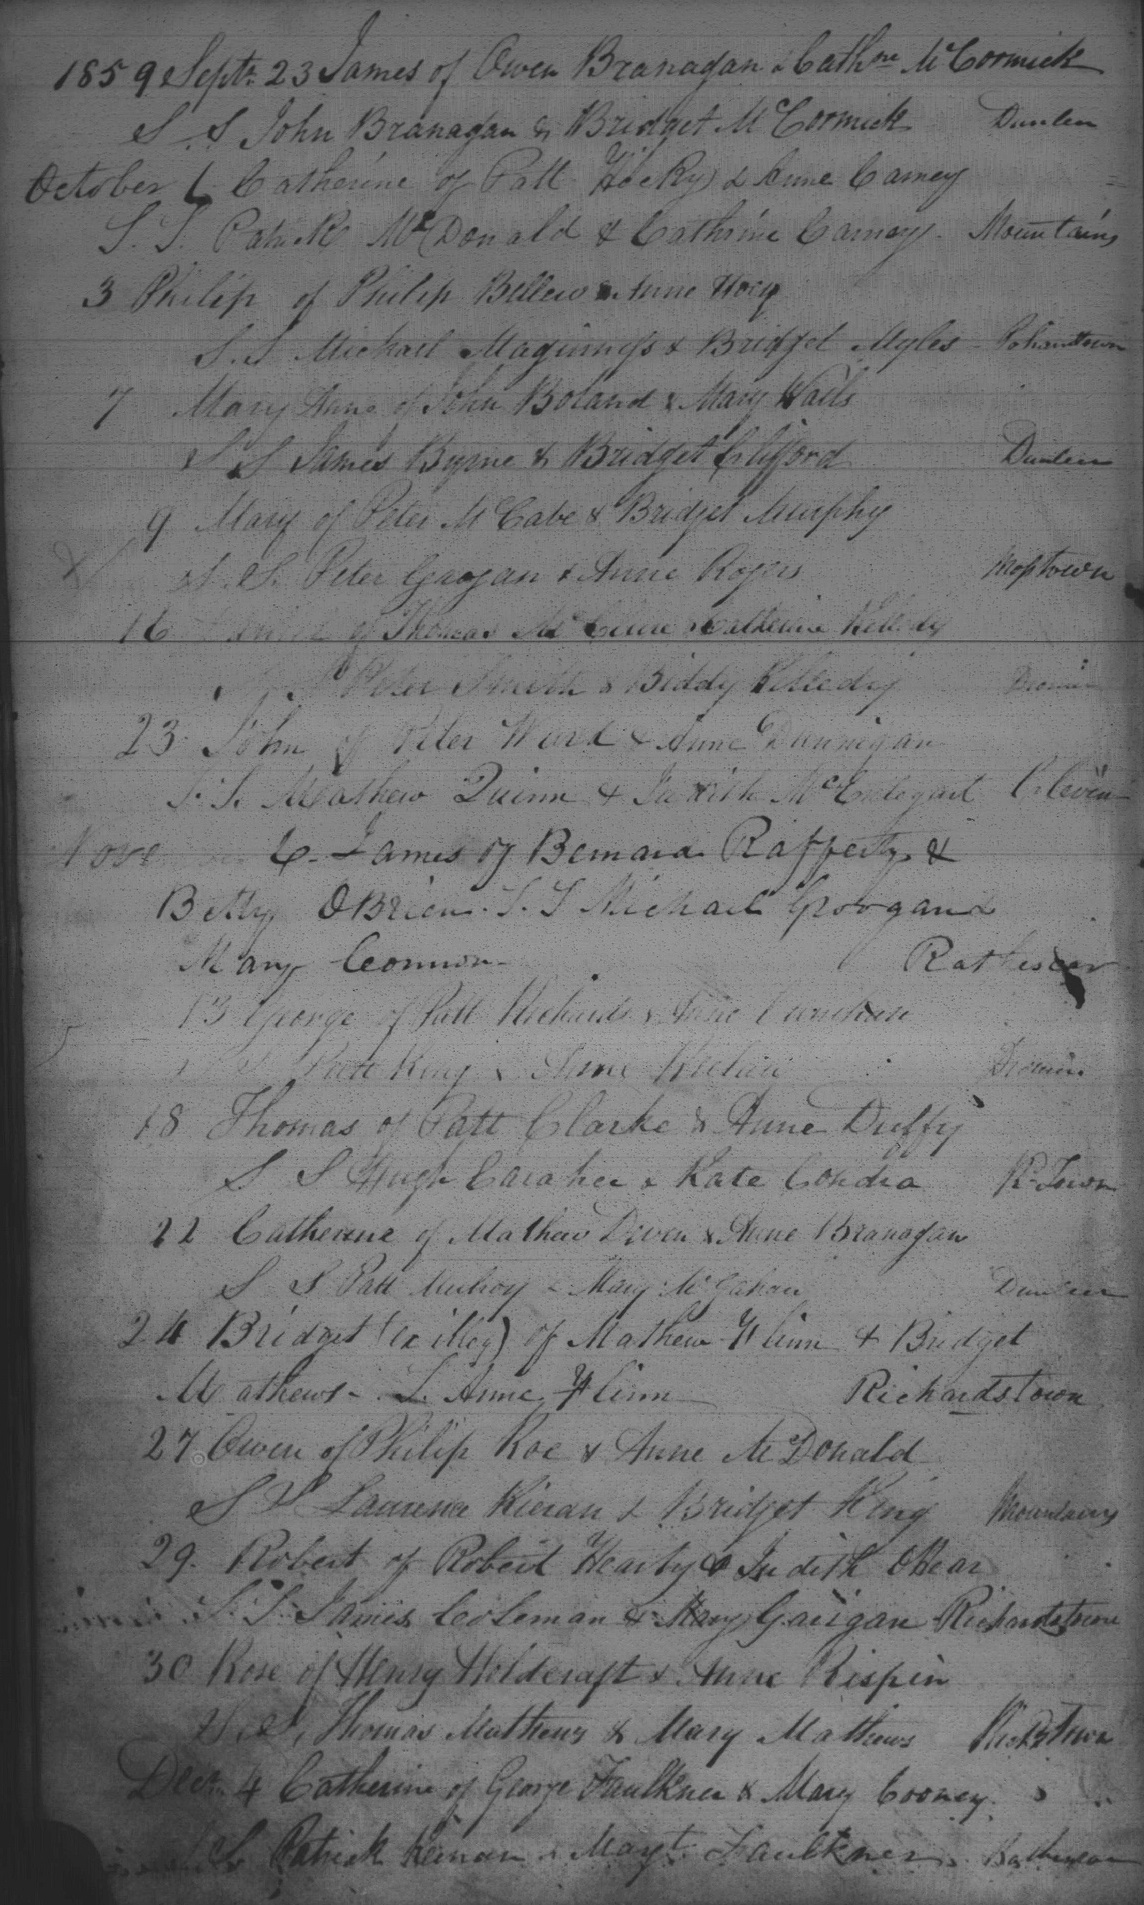 1859 Septr 23 James of Owen Branagan & Cathne McCormick
S. S John Branagan & Bridget McCormick Dunleer
October 6 Catherine of Patt & Anne Carney
S. S. Patrick McDonald & Cathrine Carney. Mountains
3 Philip of Philip Bellew & Anne Hoey
S. S Michael Maginness & Bridget Myles
7 Mary Anne of John Boland & Mary Wails
S S James Byrne & Bridget Clifford Dunleer
9 Mary of Peter McCabe & Bridget Murphy
S. S. Peter Grogan & Anne Rogers Moptown
16 of Thomas & Catherine
S Peter Smith & Biddy
23 John of Peter Ward & Anne Dunnigan
S. S. Mathew Quinn & Judith McEntegart
Nove 6. James of Bernard Rafferty &
Betty OBrien. S. S Michael Groogan &
Mary Connor - Rathescar
13 George of Patt & Anne
S Patt King & Anne Dromin
18 Thomas of Patt Clarke & Anne Duffy
S S Hugh Caraher & Kate Condra R. Town
22 Catherine of Mathew Diven & Anne Branagan
S S Patt Mulroy & Mary McGahan Dunleer
24 Bridget of Mathew Flinn & Bridget
Mathews - S. Anne Flinn Richardstown
27 Owen of Philip Roe & Anne McDonald
S S Laurence Kieran & Bridget King Mountains
29. Robert of Robert Hearty & Judith OHear
S. S. James Coleman & Mary Gaiigan Richardstown
30 Rose of Henry Holdcraft & Anne Rispin
S. S. Thomas Mathews & Mary Mathews
Decr 4 Catherine of George Faulkner & Mary Cooney.
S Patrick Kernan & Margt Faulkner.